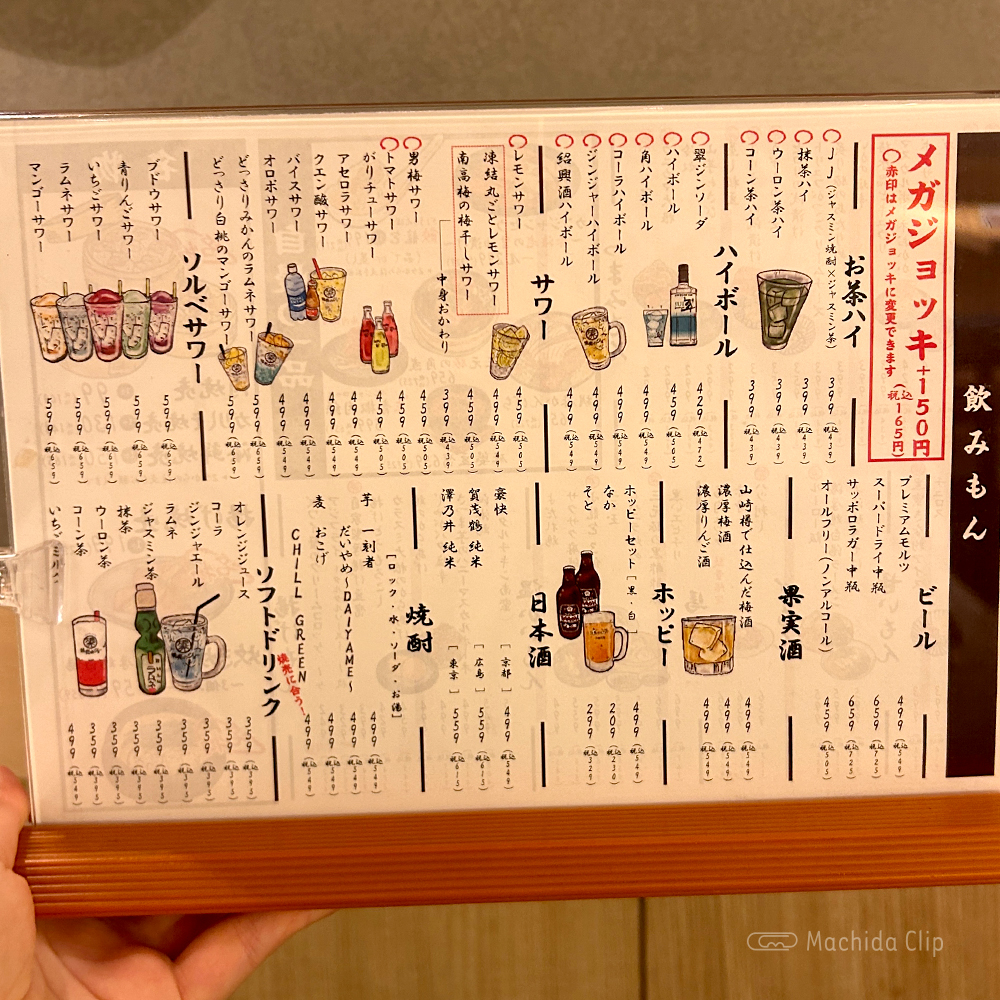 飲みもん
メガジョッキ+150円
(税込165円)
赤印はメガジョッキに変更できます
お茶ハイ
JJ(ジャスミン焼酎×ジャスミン茶) 399(税込439)
抹茶ハイ 399(税込439)
ウーロン茶ハイ 399(税込439)
コーン茶ハイ 399(税込439)
ハイボール
翠ジンソーダ 429(税込472)
ハイボール 459(税込505)
角ハイボール 499(税込549)
コーラハイボール 499(税込549)
ジンジャーハイボール 499(税込549)
紹興酒ハイボール 499(税込549)
サワー
レモンサワー 459(税込505)
凍結丸ごとレモンサワー 499(税込549)
南高梅の梅干しサワー 459(税込505)
中身おかわり 399(税込439)
男梅サワー 459(税込505)
トマトサワー 459(税込505)
がりチューサワー 459(税込505)
アセロラサワー 499(税込549)
クエン酸サワー 499(税込549)
バイスサワー 499(税込549)
オロポサワー 499(税込549)
どっさりみかんのラムネサワー 599(税込659)
どっさり白桃のマンゴーサワー 599(税込659)
ソルベサワー
ブドウサワー 599(税込659)
青りんごサワー 599(税込659)
いちごサワー 599(税込659)
ラムネサワー 599(税込659)
マンゴーサワー 599(税込659)
ビール
プレミアムモルツ 499(税込549)
スーパードライ中瓶 659(税込725)
サッポロラガー中瓶 659(税込725)
オールフリー(ノンアルコール) 459(税込505)
果実酒
山崎樽で仕込んだ梅酒 499(税込549)
濃厚梅酒 499(税込549)
濃厚りんご酒 499(税込549)
ホッピー
ホッピーセット[黒・白] 499(税込549)
なか 209(税込230)
そと 299(税込329)
日本酒
豪快 [京都] 499(税込549)
賀茂鶴 純米 [広島] 559(税込615)
澤乃井 純米 [東京] 559(税込615)
焼酎
[ロック・水・ソーダ・お湯]
芋 一刻者 499(税込549)
だいやめ~DAIYAME~ 499(税込549)
麦 おこげ 499(税込549)
CHILL GREEN 焼売に合う! 499(税込549)
ソフトドリンク
オレンジジュース 359(税込395)
コーラ 359(税込395)
ジンジャエール 359(税込395)
ラムネ 359(税込395)
ジャスミン茶 359(税込395)
抹茶 359(税込395)
ウーロン茶 359(税込395)
コーン茶 359(税込395)
499(税込549)
Machida Clip